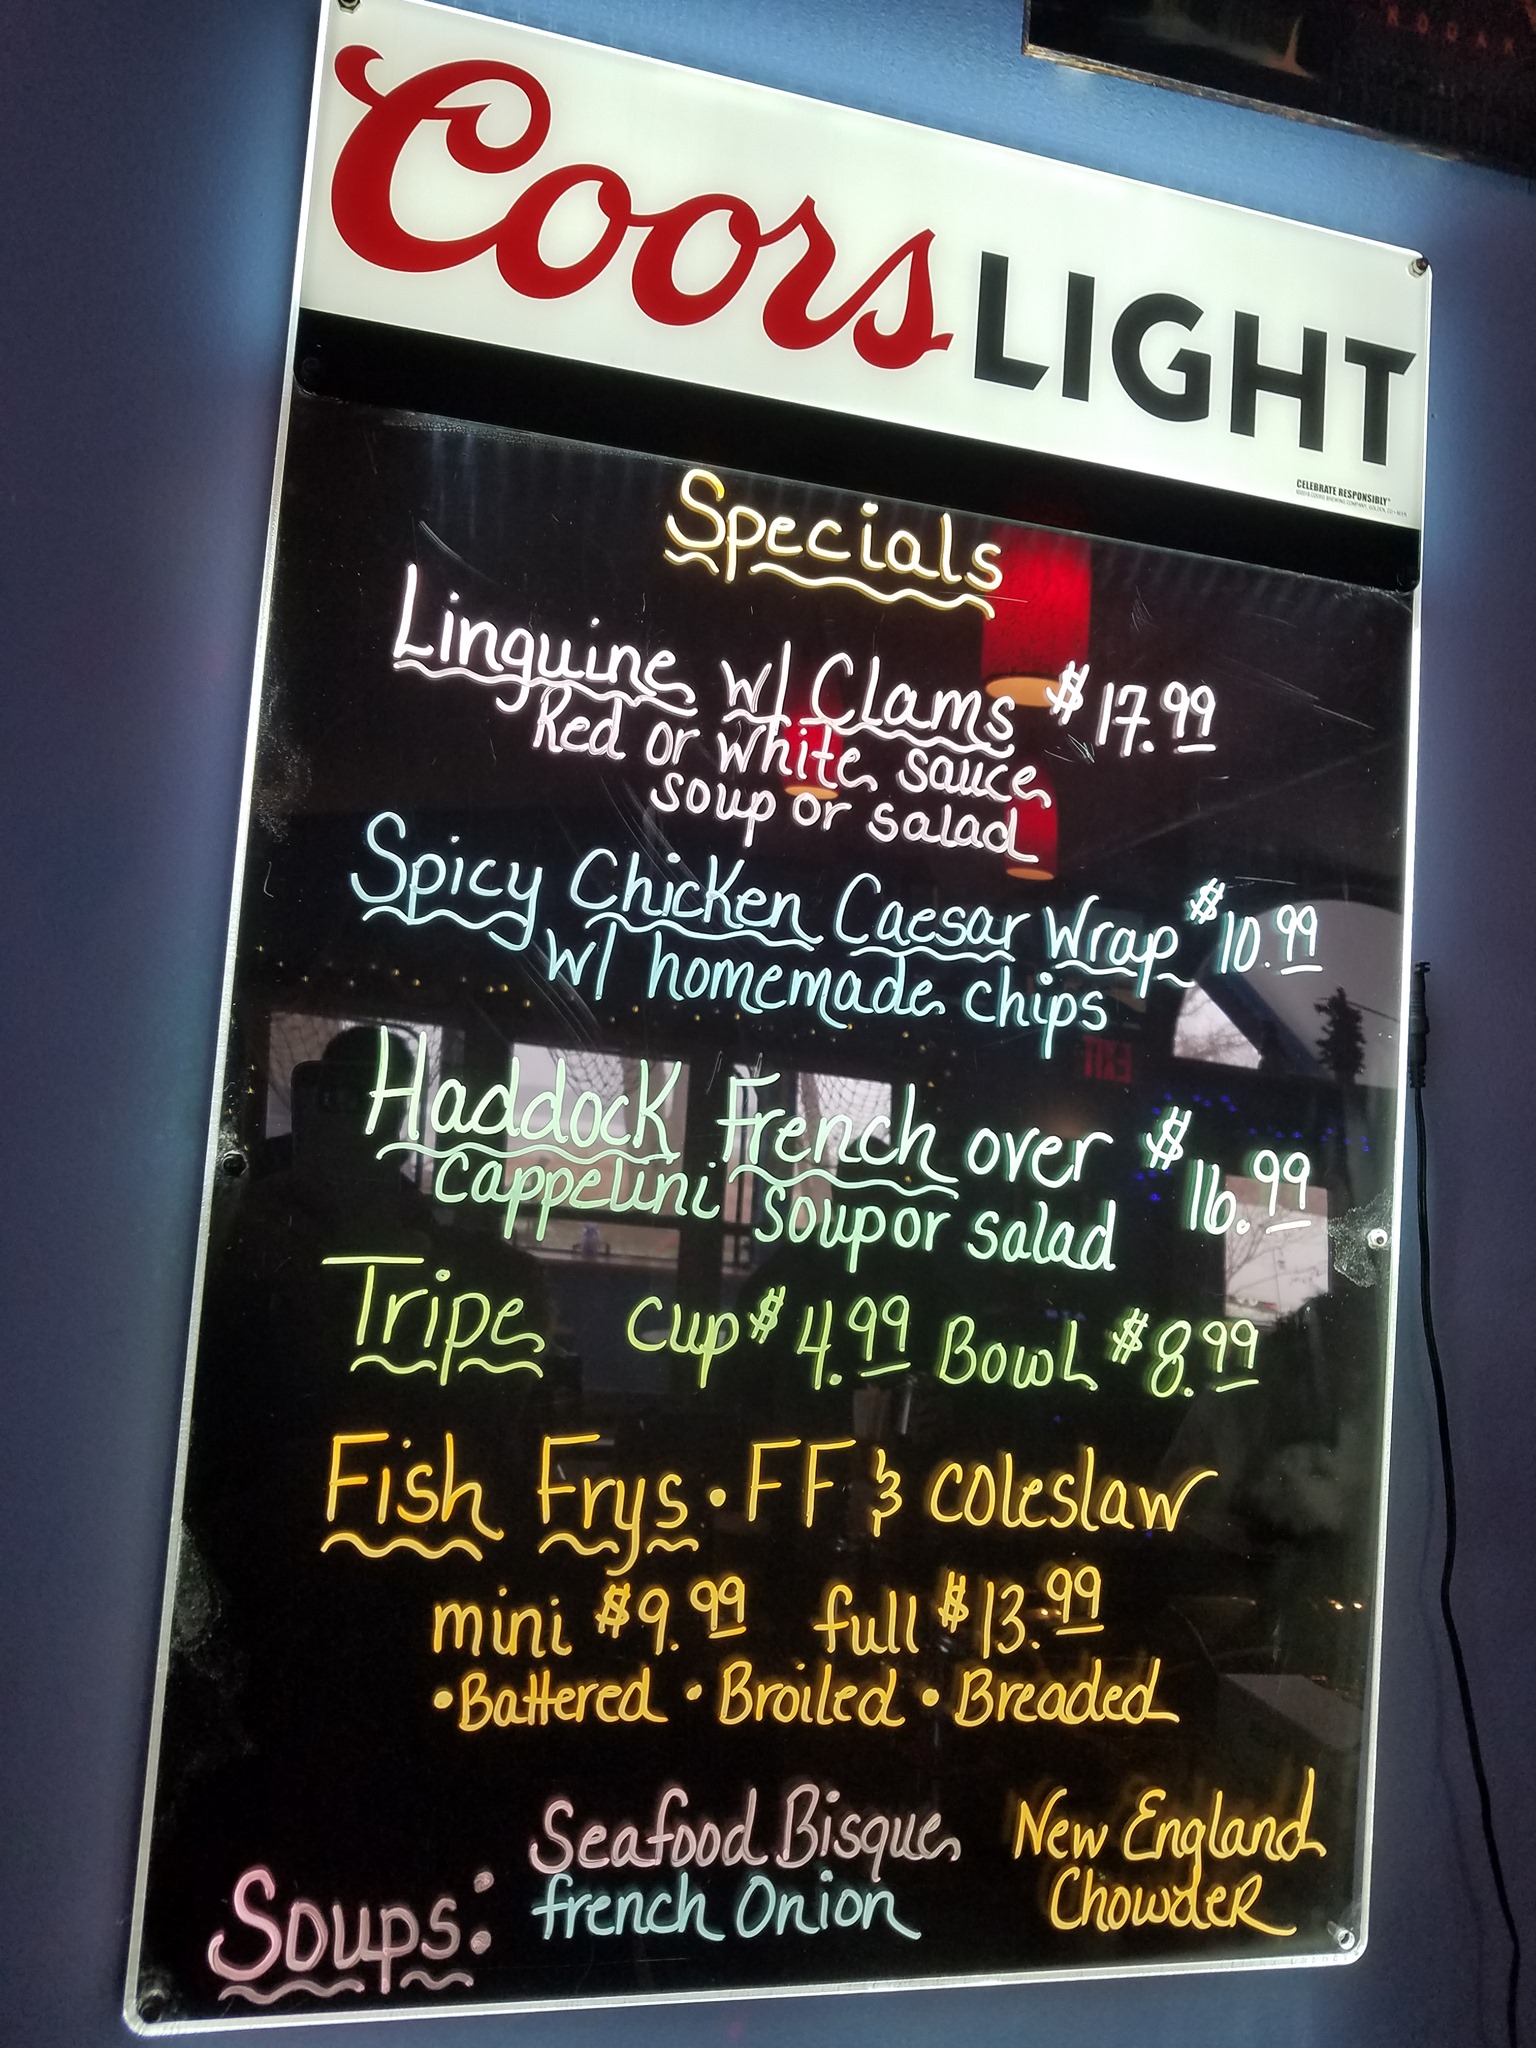 Coors LIGHT
CELEBRATE RESPONSIBLY®
Specials
Linguine w/ Clams $17.99
Red or white sauce
soup or salad
Spicy Chicken Caesar Wrap $10.99
w/ homemade chips
Haddock French over $16.99
cappelini soup or salad
Tripe cup $4.99 Bowl $8.99
Fish Frys • FF & coleslaw
mini $9.99 full $13.99
• Battered • Broiled • Breaded
Soups: Seafood Bisque
french Onion
New England
Chowder
EXIT